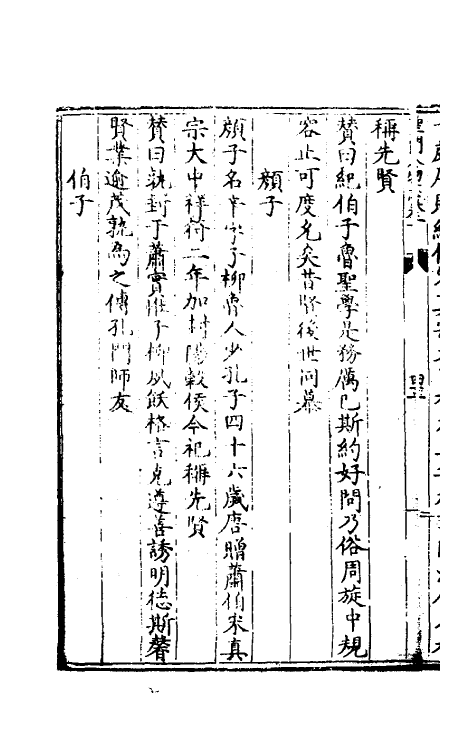 稱先賢
贊曰紀伯子魯聖學是務厲己斯約好問乃俗周旋中規
容止可度允矣昔賢後世同慕
顏子
顏子名辛字子柳魯人少孔子四十六歲唐贈蕭伯宋真
宗大中祥符二年加封陽穀侯今祀稱先賢
贊曰執封于蕭實惟子柳夙飫格言克遵善誘明德斯馨
賢業逾茂孰為之傳孔門師友
伯子